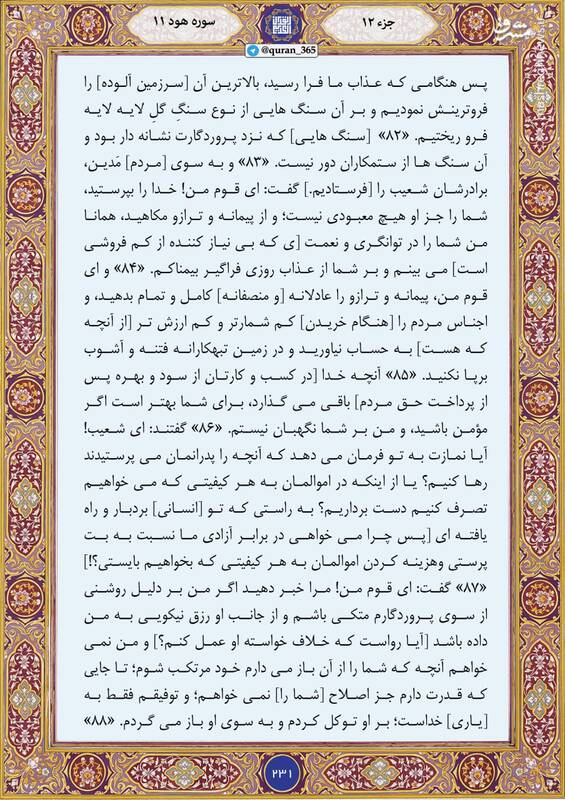 سوره هود ۱۱
جزء ۱۲
مشرق
@quran_365
پس هنگامی که عذاب ما فرا رسید، بالاترین آن [سرزمین آلوده] را
فروترینش نمودیم و بر آن سنگ هایی از نوع سنگِ گلِ لایه لایه
فرو ریختیم. «۸۲» [سنگ هایی] که نزد پروردگارت نشانه دار بود و
آن سنگ ها از ستمکاران دور نیست. «۸۳» و به سوی [مردم] مَدین،
برادرشان شعیب را [فرستادیم.] گفت: ای قوم من! خدا را بپرستید،
شما را جز او هیچ معبودی نیست؛ و از پیمانه و ترازو مکاهید، همانا
من شما را در توانگری و نعمت [ی که بی نیاز کننده از کم فروشی
است] می بینم و بر شما از عذاب روزی فراگیر بیمناکم. «۸۴» و ای
قوم من، پیمانه و ترازو را عادلانه [و منصفانه] کامل و تمام بدهید، و
اجناس مردم را [هنگام خریدن] کم شمارتر و کم ارزش تر [از آنچه
که هست] به حساب نیاورید و در زمین تبهکارانه فتنه و آشوب
برپا نکنید. «۸۵» آنچه خدا [در کسب و کارتان از سود و بهره پس
از پرداخت حق مردم] باقی می گذارد، برای شما بهتر است اگر
مؤمن باشید، و من بر شما نگهبان نیستم. «۸۶» گفتند: ای شعیب!
آیا نمازت به تو فرمان می دهد که آنچه را پدرانمان می پرستیدند
رها کنیم؟ یا از اینکه در اموالمان به هر کیفیتی که می خواهیم
تصرف کنیم دست برداریم؟ به راستی که تو [انسانی] بردبار و راه
یافته ای [پس چرا می خواهی در برابر آزادی ما نسبت به بت
پرستی وهزینه کردن اموالمان به هر کیفیتی که بخواهیم بایستی؟!]
«۸۷» گفت: ای قوم من! مرا خبر دهید اگر من بر دلیل روشنی
از سوی پروردگارم متکی باشم و از جانب او رزق نیکویی به من
داده باشد [آیا رواست که خلاف خواسته او عمل کنم؟] و من نمی
خواهم آنچه که شما را از آن باز می دارم خود مرتکب شوم؛ تا جایی
که قدرت دارم جز اصلاح [شما را] نمی خواهم؛ و توفیقم فقط به
[یاری] خداست؛ بر او توکل کردم و به سوی او باز می گردم. «۸۸»
۲۳۱